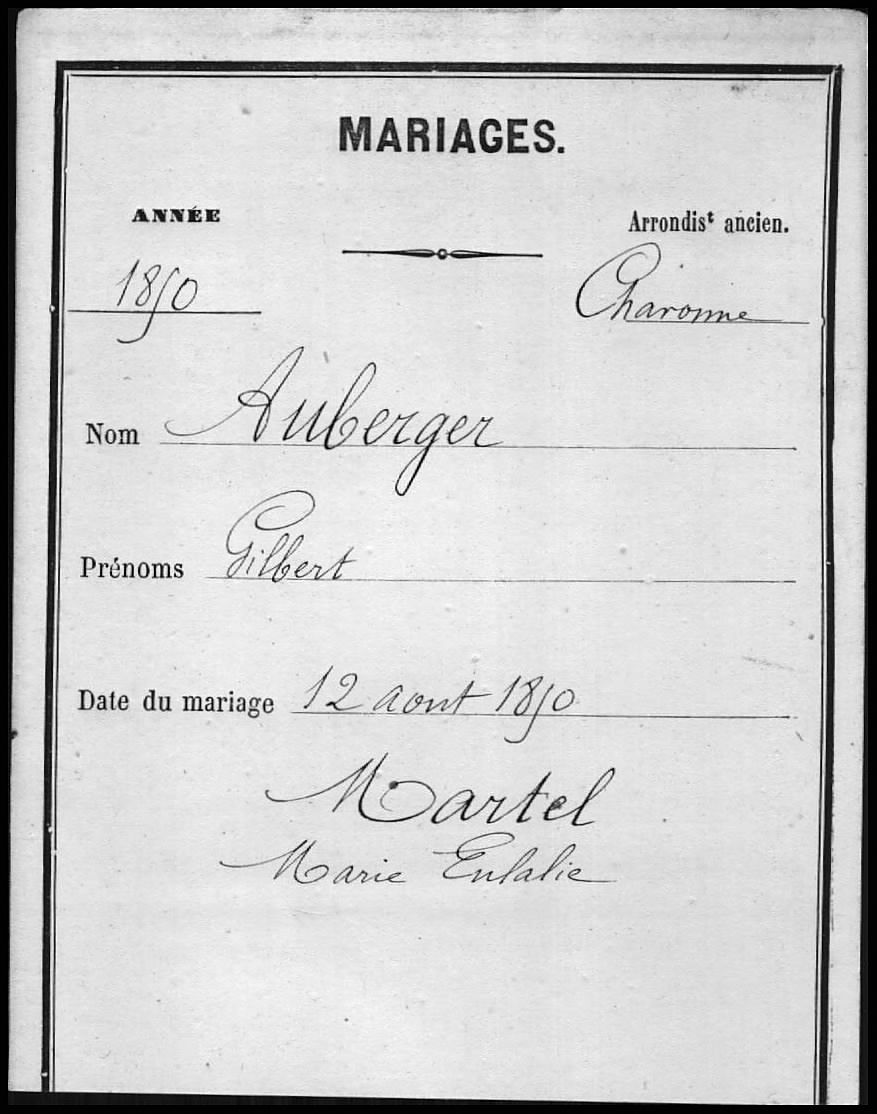 MARIAGES.
ANNÉE
Arrondisᵗ ancien.
1850
Charonne
Nom Auberger
Prénoms Gilbert
Date du mariage 12 aout 1850
Martel
Marie Eulalie